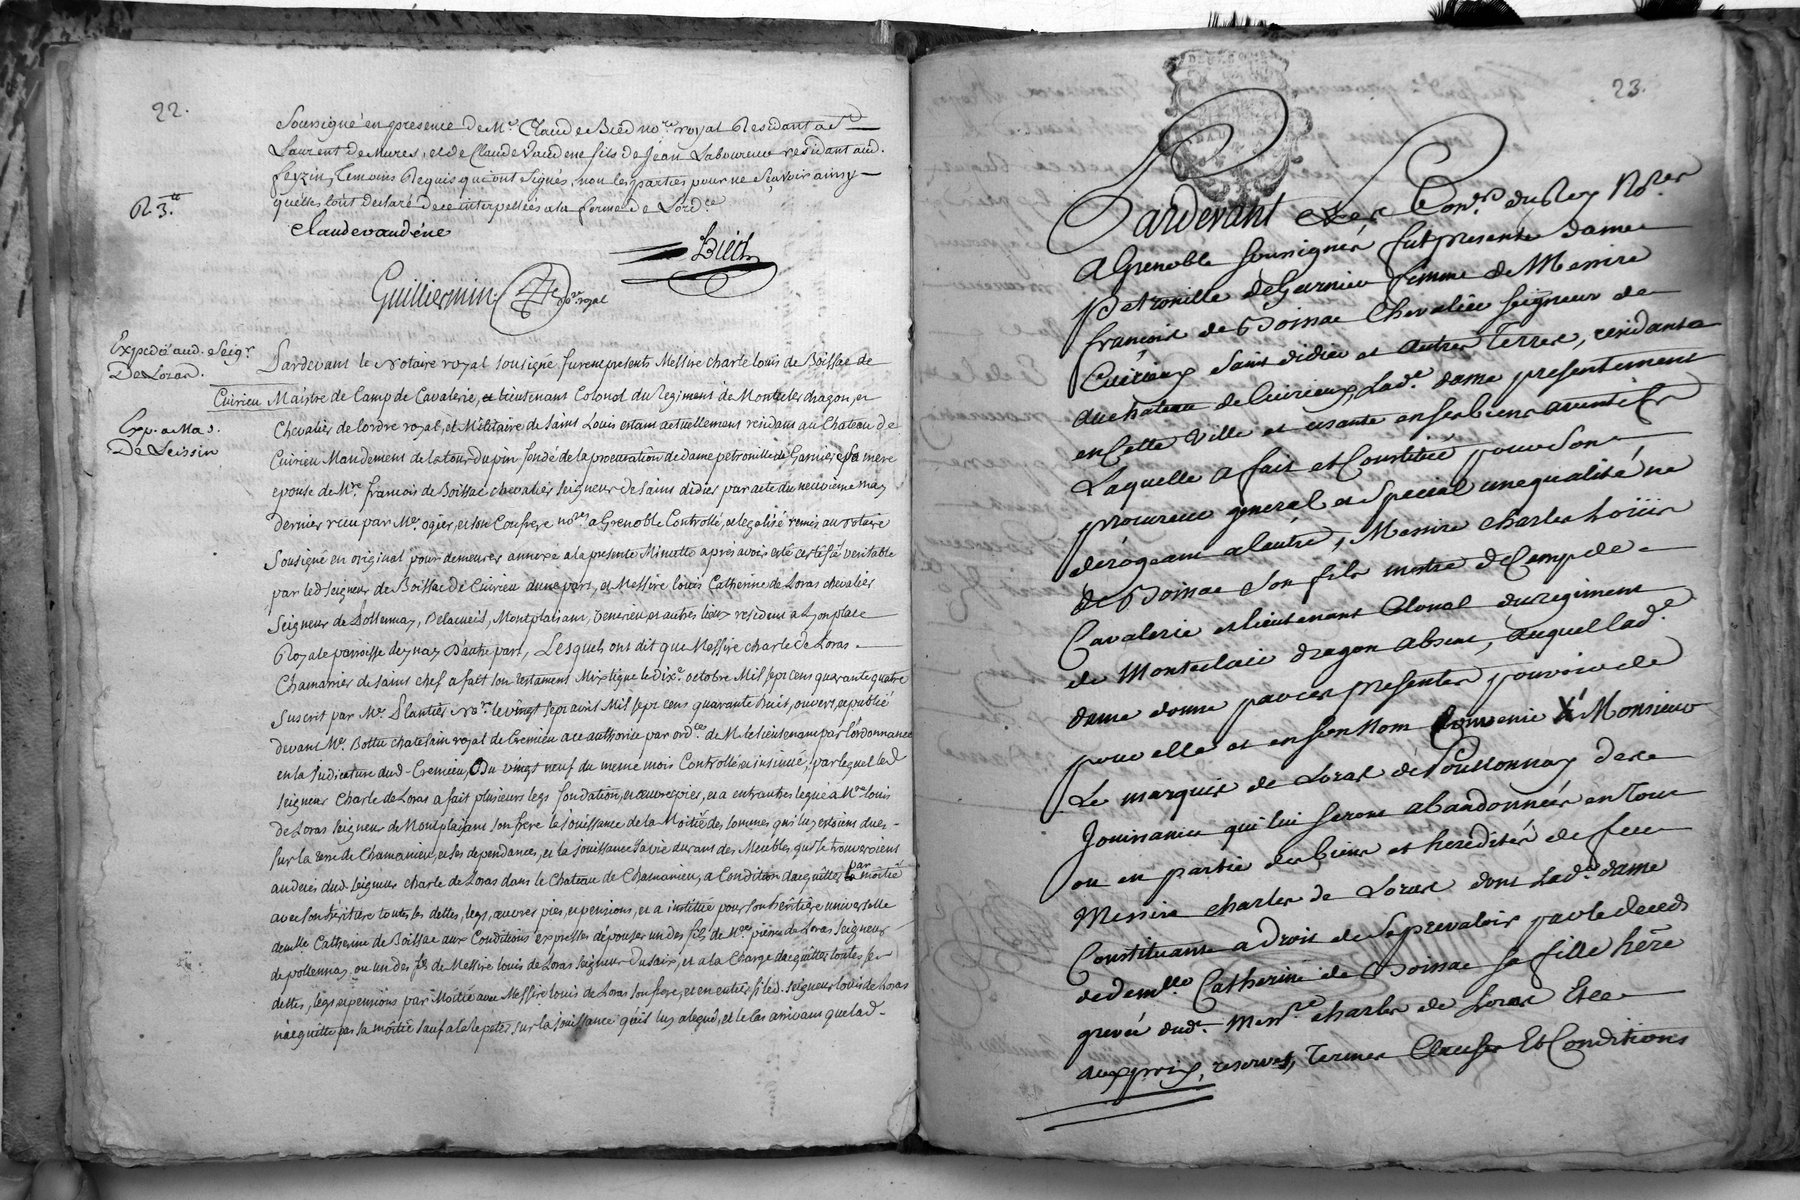 22.
Soussigné en presence de Me. Claude Bied nore. royal Residant a St
Laurent de Mures, et de Claude Vaudene fils de Jean Laboureur residant aud.
feyzin, Temoins Requis qui ont signés, non les parties pour ne sçavoir ainsy
quelles l'ont declaré de ce interpellées a la forme de Lordce
R. 3.tt
Claudevaudéne
Bied
Guilliermin nore. royal
Expedié aud. Seigr.
De Loras.
Exp. a Ma s.
De Leissin
Pardevant le Notaire royal sousigné furent presents Messire charle louis de Boissac de
Cuirieu Maistre de Camp de Cavalerie, et Lieutenant Colonel du Regiment de Monteler dragon, et
Chevalier de lordre royal, et Militaire de Saint Louis estant actuellement residant au Chateau de
Cuirieu Mandement de la tour du pin fondé de la procuration de dame petronille de Garnier sa mere
epouse de Mre. francois de Boissac chevalier seigneur de saint didier par acte du neuvieme may
dernier reçu par Me. ogier, et son Confrere nores. a Grenoble Controllé, et legalisé remis au notaire
Sousigné en original pour demeurer annexé a la presente Minutte apres avoir esté certifié veritable
par led seigneur de Boissac de Cuirieu dune part, et Messire louis Catherine de Loras chevalier
Seigneur de Pollennay, Belacueil, Montplaisant, et autres lieux resident a Lyon place
Royale parroisse deynay D'autre part, Lesquels ont dit que Messire charle de Loras
Chamarier de saint chef a fait son testament Mixtique le dixe. octobre Mil sept cens quarante quatre
Suscrit par Me. Plantier nore. le vingt sept avril Mil sept cens quarante huit, ouvert, et publié
devant Me. Bottu chatelain royal de Cremieu a ce authorisé par ordce. de M. le lieutenant par l'ordonnance
en la Judicature dud. Cremieu, Du vingt neuf du meme mois Controllé et insinué, par lequel led
seigneur Charle de Loras a fait plusieurs legs fondation, et oeuvres pies, et a entrautres legué a Mre louis
de Loras seigneur de Montplaisant son frere la Jouissance de la Moitié des sommes qui luy estoient dues
sur la terre de Chamanieu, et ses dependances, et la Jouissance sa vie durant des Meubles qui se trouveroient
au deces dud. seigneur charle de Loras dans le Chateau de Chamanieu, a Condition dacquitter par moitié
avec son heritiere toutes les dettes, legs, oeuvres pies, et pensions, et a institué pour son heritiere universelle
demlle. Catherine de Boissac aux Conditions expresses depouser un des fils de Mre pierre de Loras seigneur
de pollennay, ou un des fils de Messire louis de Loras seigneur du saix, et a la Charge dacquitter toutes ses
dettes, legs et pensions par Moitié avec Messire louis de Loras son frere, et en entier si led. seigneur louis de Loras
n'acquitte pas sa moitié sauf a le repeter sur la Jouissance quil luy a legué, et le Cas arrivant que lad.
23.
Pardevant Les Conrs. du Roy Nores
A Grenoble soussignés fut presente dame
petronille de Garnier femme de Messire
françois de Boissac Chevalier seigneur de
Cuirieux saint didier et autres Terres, residante
au chateau de Cuirieux, Lade. dame presentement
en Cette Ville et usante
Laquelle a fait et Constitué pour son
procureur general et special une qualité ne
dérogeant a lautre, Messire charles Louis
de Boissac son fils mestre de Camp de
Cavalerie et lieutenant Colonel du Regiment
de Monteclair dragon absent, auquel lade.
dame donne par ces presentes pouvoir de
pour elle et en son Nom Convenir X Monsieur
Le marquis de Loras de Poullonnay des
Jouissances qui lui seront abandonnées en Tout
ou en partie des biens et heredités de feu
Messire charles de Loras dont Lade. dame
Constituante a droit de se prevaloir par le decés
de demlle Catherine de Boissac sa fille hére
grevée dudt. messre. charles de Loras Et ce
aux prix, reserves, Termes Clauses Et Conditions